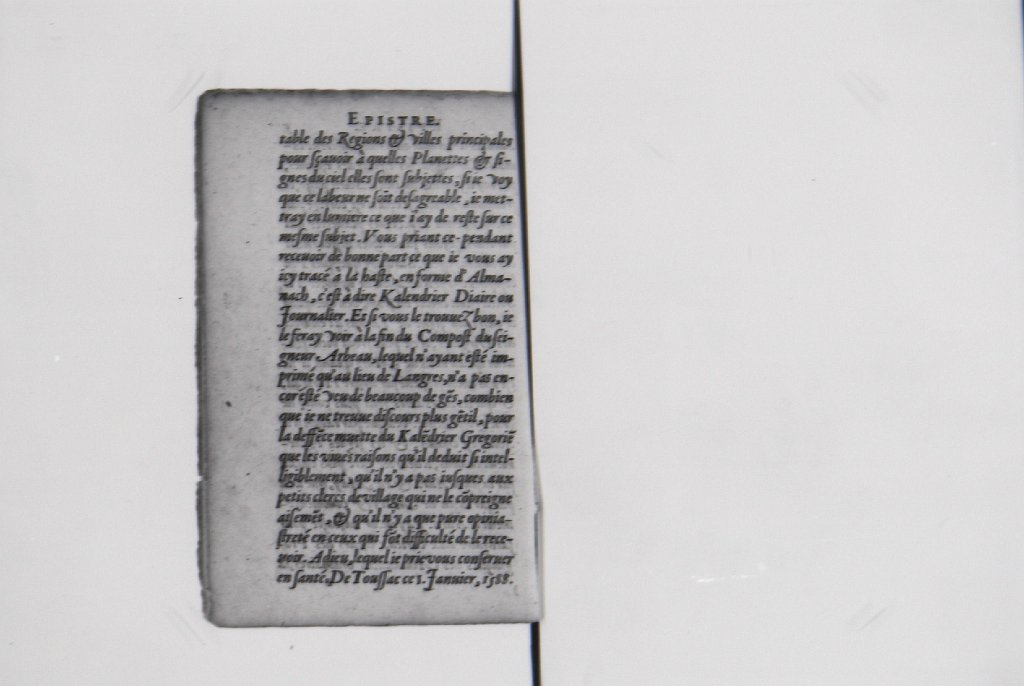 EPISTRE.
table des Regions & villes principales
pour sçauoir à quelles Planettes & si-
gnes du ciel elles sont subjettes, si ie voy
que ce labeur ne soit desagreable, ie met-
tray en lumiere ce que i'ay de reste sur ce
mesme subjet. Vous priant ce-pendant
receuoir de bonne part ce que ie vous ay
icy tracé à la haste, en forme d'Alma-
nach, c'est à dire Kalendrier Diaire ou
Journalier. Et si vous le trouuez bon, ie
le feray voir à la fin du Compost du sei-
gneur Arbeau, lequel n'ayant esté im-
primé qu'au lieu de Langres, n'a pas en-
cor esté veu de beaucoup de gẽs, combien
que ie ne treuue discours plus gẽtil, pour
la deffẽce muette du Kalẽdrier Gregoriẽ
que les viues raisons qu'il deduit si intel-
ligiblement, qu'il n'y a pas iusques aux
petits clercs de village qui ne le cõpreigne
aisemẽt, & qu'il n'y a que pure opinia-
streté en ceux qui fõt difficulté de le rece-
uoir. Adieu, lequel ie prie vous conseruer
en santé. De Toussac ce 1. Januier, 1588.